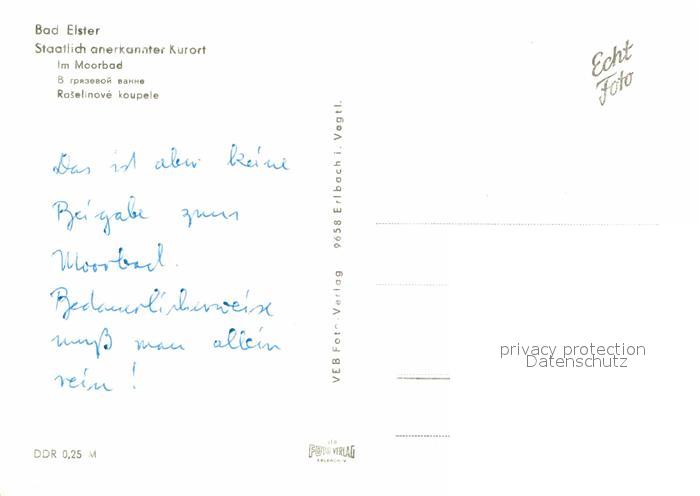 Bad Elster
Staatlich anerkannter Kurort
Im Moorbad
В грязевой ванне
Rašelinové koupele
Das ist aber keine
Beigabe zum
Moorbad.
Bedauerlicherweise
muß man allein
rein!
DDR 0,25 M
VEB Foto Verlag 9658 Erlbach i. Vogtl.
Echt
Foto
VEB
FOTO VERLAG
ERLBACH/V.
privacy protection
Datenschutz